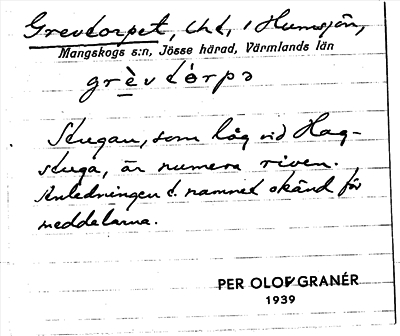 Grevtorpet, lht, i Humsjön,
Mangskogs s:n, Jösse härad, Värmlands län
grèv tòrpə
Stugan, som låg vid Hag-
stuga, är numera riven.
Anledningen t. namnet okänd för
meddelarna.
PER OLOF GRANÉR
1939